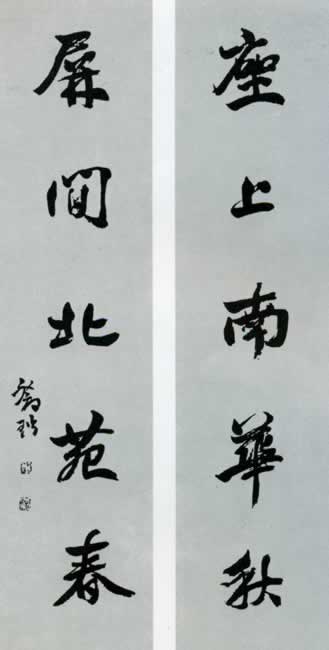 座上南華秋
屏間北苑春